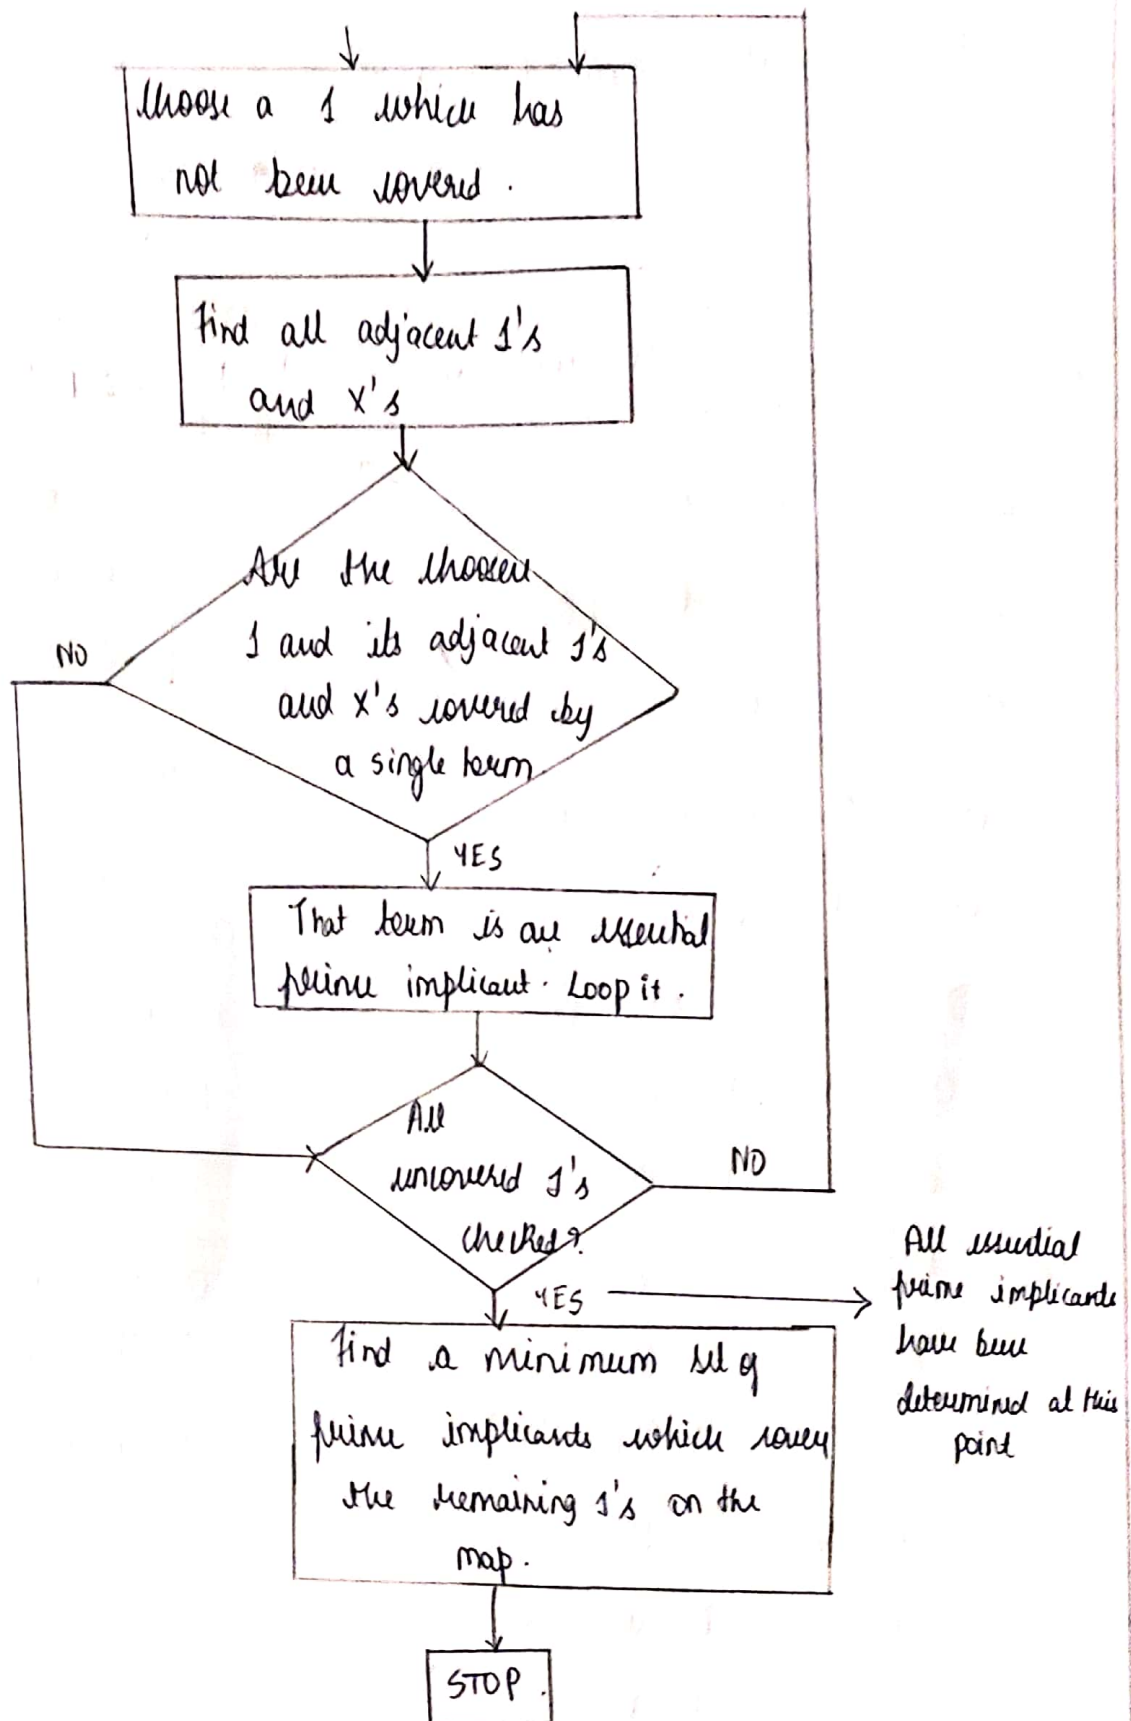 Choose a 1 which has
not been covered.
Find all adjacent 1's
and X's
Are the choosen
1 and its adjacent 1's
and X's covered by
a single term
NO
YES
That term is an essential
prime implicant. Loop it.
All
uncovered 1's
checked?
NO
YES
All essential
prime implicants
have been
determined at this
point
Find a minimum set of
prime implicants which cover
the remaining 1's on the
map.
STOP.